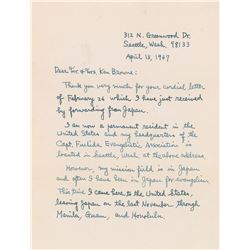 312 N. Greenwood Dr.
Seattle, Wash. 98133
April 13, 1967
Dear Mr. & Mrs. Ken Browne:
Thank you very much for your cordial letter
of February 26 which I have just received
by forwarding from Japan.
I am now a permanent resident in the
United States and my headquarters of the
Capt. Fuchida Evangelistic Association is
located in Seattle, Wash at the above address.
However, my mission field is in Japan
and often I have been in Japan for evangelism
This time I came here to the United States,
leaving Japan on the last November through
Manila, Guam, and Honolulu.